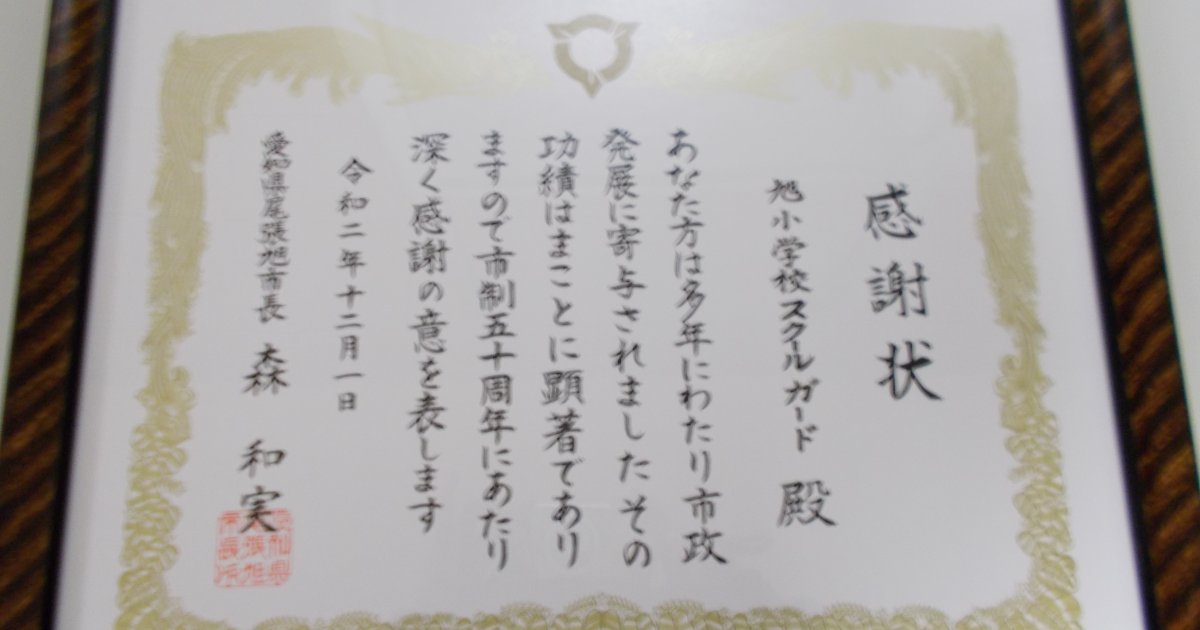 感謝状
旭小学校スクルガード 殿
あなた方は多年にわたり市政
発展に寄与されました その
功績はまことに顕著であり
ますので市制五十周年にあたり
深く感謝の意を表します
令和二年十二月一日
愛知県尾張旭市長 森 和実